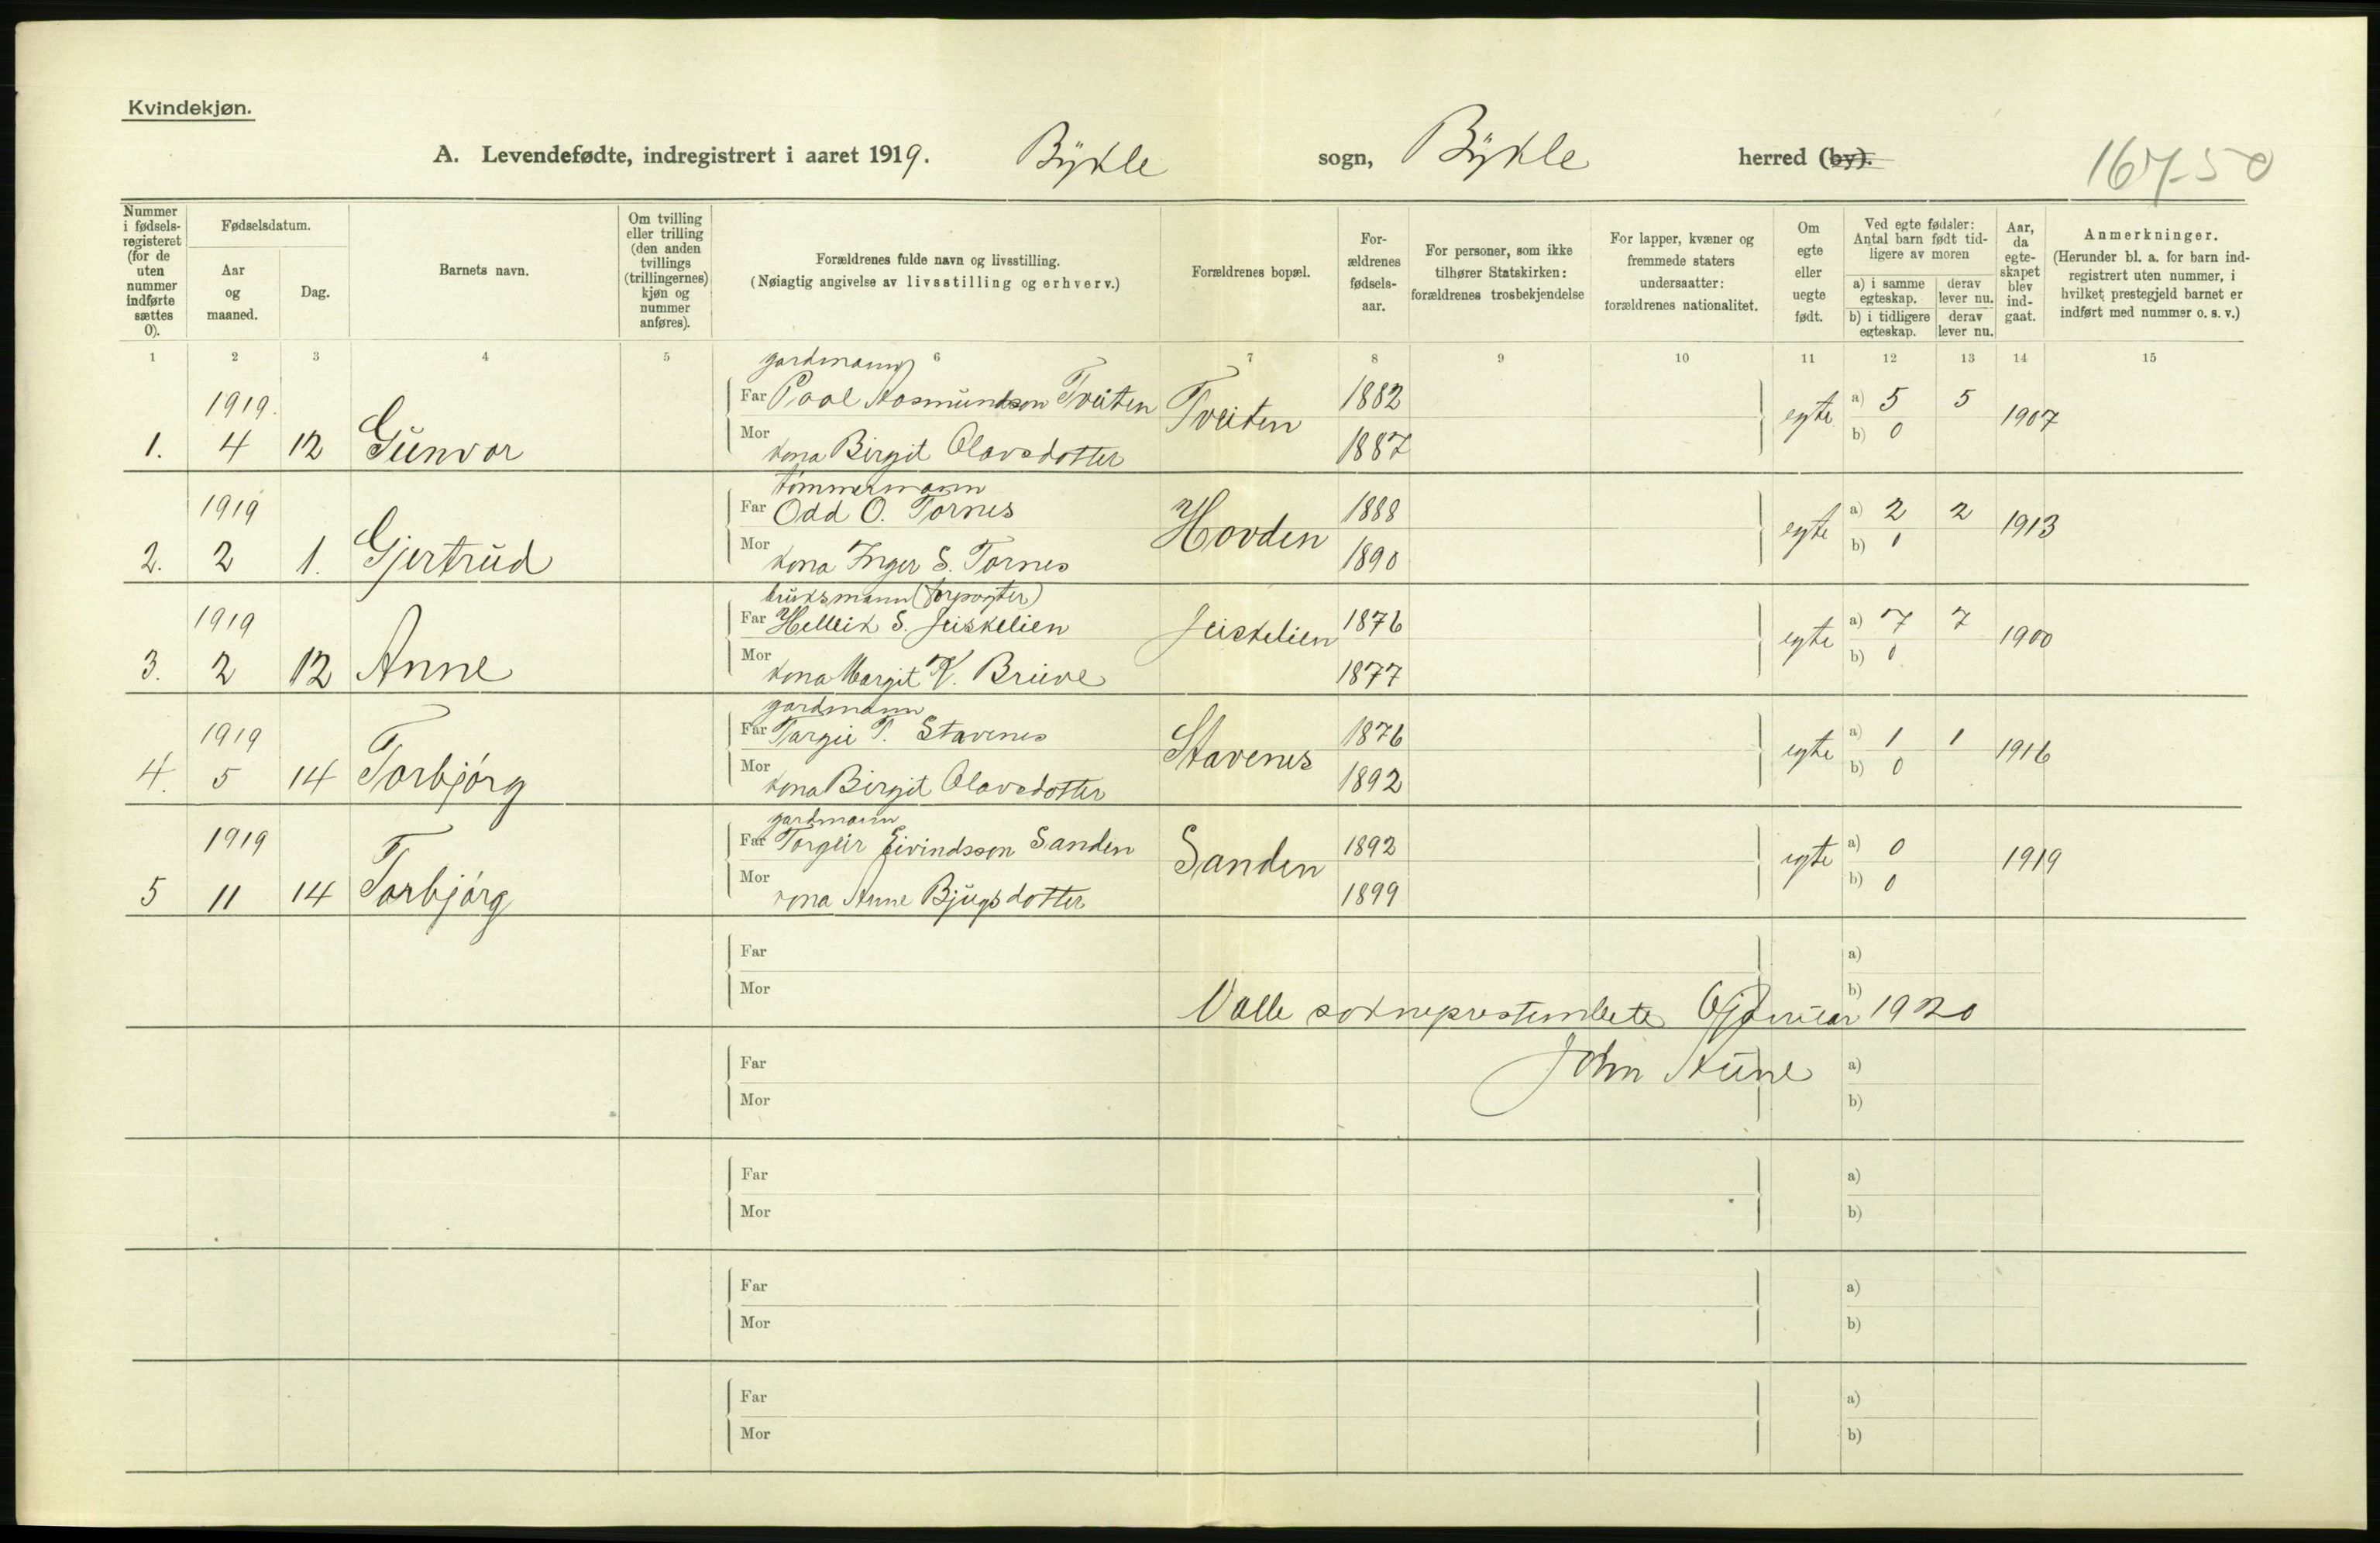 Kvindekjøn.
A. Levendefødte, indregistrert i aaret 1919. Bykle sogn, Bykle herred (by).
167-50
Nummer i fødselsregisteret (for de uten nummer indførte sættes 0).
Fødselsdatum.
Aar og maaned.
Dag.
Barnets navn.
Om tvilling eller trilling (den anden tvillings (trillingernes) kjøn og nummer anføres).
Forældrenes fulde navn og livsstilling.
(Nøiagtig angivelse av livsstilling og erhverv.)
Forældrenes bopæl.
Forældrenes fødselsaar.
For personer, som ikke tilhører Statskirken: forældrenes trosbekjendelse
For lapper, kvæner og fremmede staters undersaatter: forældrenes nationalitet.
Om egte eller uegte født.
Ved egte fødsler: Antal barn født tidligere av moren
a) i samme egteskap. derav lever nu.
b) i tidligere egteskap. derav lever nu.
Aar, da egteskapet blev indgaat.
Anmerkninger.
(Herunder bl. a. for barn indregistrert uten nummer, i hvilket prestegjeld barnet er indført med nummer o. s. v.)
1 2 3 4 5 6 7 8 9 10 11 12 13 14 15
gardmann
1919. Far Paal Aasmundson Tveiten Tveiten 1882 egte a) 5 5 1907
1. 4 12 Gunvor Mor kona Birgit Olavsdotter 1887 b) 0
tømmermann
1919 Far Odd O. Tornes Hovden 1888 egte a) 2 2 1913
2. 2 1. Gjertrud Mor kona Inger S. Tornes 1890 b) 0
bruksmann
1919 Far Helleik S. Jeiskelien Jeiskelien 1876 egte a) 7 7 1900
3. 2 12 Anne Mor kona Margit K. Breive 1877 b) 0
gardmann
1919 Far Targei T. Stavenes Stavenes 1876 egte a) 1 1 1916
4. 5 14 Torbjørg Mor kona Birgit Olavsdotter 1892 b) 0
gardmann
1919 Far Torgeir Eivindsson Sanden Sanden 1892 egte a) 0 1919
5 11 14 Torbjørg Mor kona Anne Bjugsdotter 1899 b) 0
Far a)
Mor b)
Valle sokneprestembete 6 januar 1920
John Aune
Far a)
Mor b)
Far a)
Mor b)
Far a)
Mor b)
Far a)
Mor b)